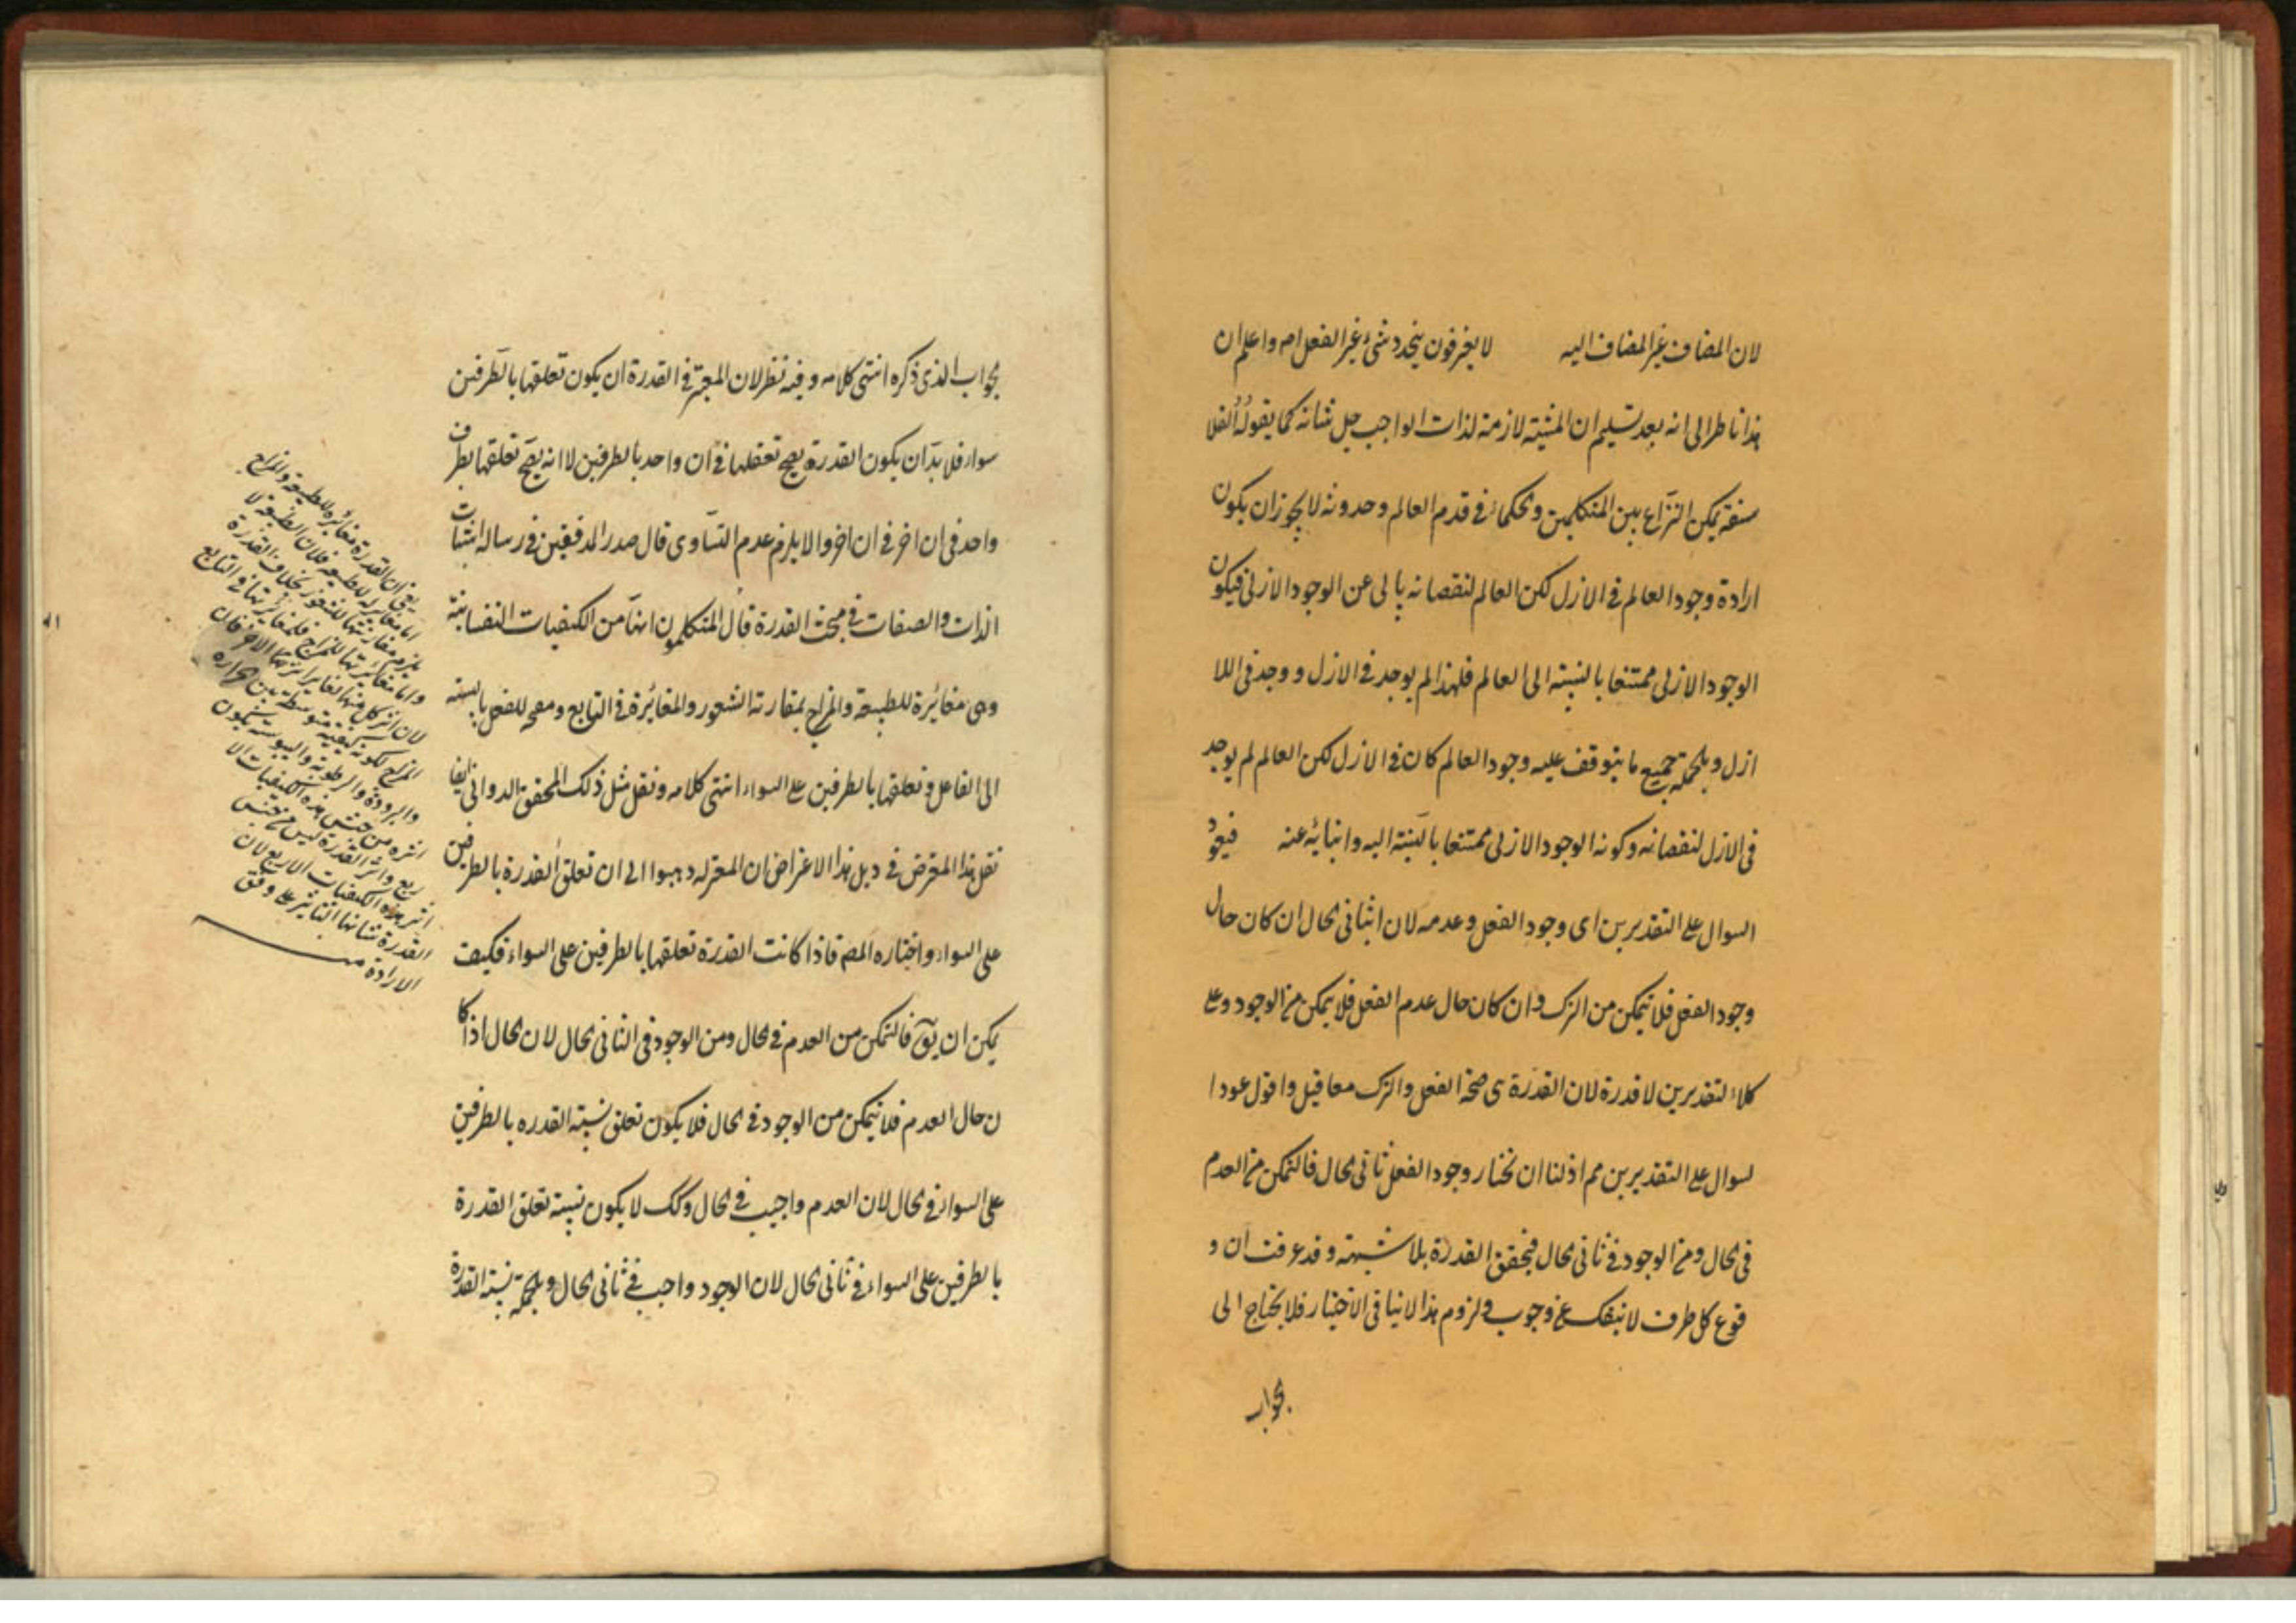 لان المضاف غير المضاف اليه لا يعرفون بتجدد شئ غير الفعل اه واعلم ان
هذا ناظر الى انه بعد تسليم ان المشية لازمة لذات الواجب جل شانه كما يقوله الفلا
سفة يمكن النزاع بين المتكلمين والحكماء في قدم العالم وحدوثه لا يجوز ان يكون
ارادة وجود العالم في الازل لكن العالم لنقصانه يابى عن الوجود الازلى فيكون
الوجود الازلى ممتنعا بالنسبة الى العالم فلهذا لم يوجد في الازل ووجد في اللا
ازل وبالجملة جميع ما يتوقف عليه وجود العالم كان في الازل لكن العالم لم يوجد
في الازل لنقصانه وكونه الوجود الازلى ممتنعا بالنسبة اليه وابائه عنه فيعود
السوال على التقديرين اى وجود الفعل وعدمه لان الثانى الحال ان كان حال
وجود الفعل فلا يتمكن من الترك وان كان حال عدم الفعل فلا يمكن من الوجود وعلى
كلا التقديرين لا قدرة لان القدرة هى صحة الفعل والترك معا قيل واقول عود ا
لسوال على التقديرين مم اذ لنا ان نختار وجود الفعل ثانى الحال فالتمكن من العدم
في الحال ومن الوجود في ثانى الحال فيتحقق القدرة بلا شبهة وقد عرفت ان و
قوع كل طرف لا ينفك عن وجوب ولزوم هذا لا ينافى الاختيار فلا يحتاج الى
الجواب
الجواب الذى ذكره انتهى كلامه وفيه نظر لان المعتبر في القدرة ان يكون تعلقها بالطرفين
سواء فلا بد ان يكون القدرة يصح تعلقها في ان واحد بالطرفين لا انه يصح تعلقها بطرف
واحد في ان اخر في ان اخر والا يلزم عدم التساوى قال صدر المدققين في رسالة اثبات
الذات والصفات في مبحث القدرة قال المتكلمون انها من الكيفيات النفسانية
وهى مغائرة للطبيعة والمزاج بمقارنة الشعور والمغائرة في التابع ومصححة للفعل بالنسبة
الى الفاعل وتعلقها بالطرفين على السواء انتهى كلامه ونقل مثل ذلك المحقق الدوانى ايضا
نقل هذا المعترض في ذيل هذا الاعتراض ان المعتزله ذهبوا الى ان تعلق القدرة بالطرفين
على السواء واختاره المصم فاذا كانت القدرة تعلقها بالطرفين على السواء فكيف
يمكن ان يوق فالتمكن من العدم في الحال ومن الوجود في الثانى الحال لان الحال اذا كا
ن حال العدم فلا يتمكن من الوجود في الحال فلا يكون تعلق نسبة القدره بالطرفين
على السواء في الحال لان العدم واجب في الحال وكك لا يكون نسبة تعلق القدرة
بالطرفين على السواء في ثانى الحال لان الوجود واجب في ثانى الحال وبالجملة نسبة القدرة
يعنى ان القدرة مغائرة للطبيعة والمزاج
اما مغايرته للطبيعة فلان الطبيعة لا
يلزم مقارنتها للشعور بخلاف القدرة
واما مغائرتها للمزاج فلمغائرتها في التابع
لان اثر كل منهما تغاير اثرها الاخر فان
المزاج لكونه كيفية متوسطة بين الحرارة
والبرودة والرطوبة واليبوسة يكون
اثره من جنس هذه الكيفيات الا
ربع واثر القدرة ليس من جنس
اثر هذه الكيفيات الاربع لان
القدرة شانها التاثير على وفق
الارادة منه